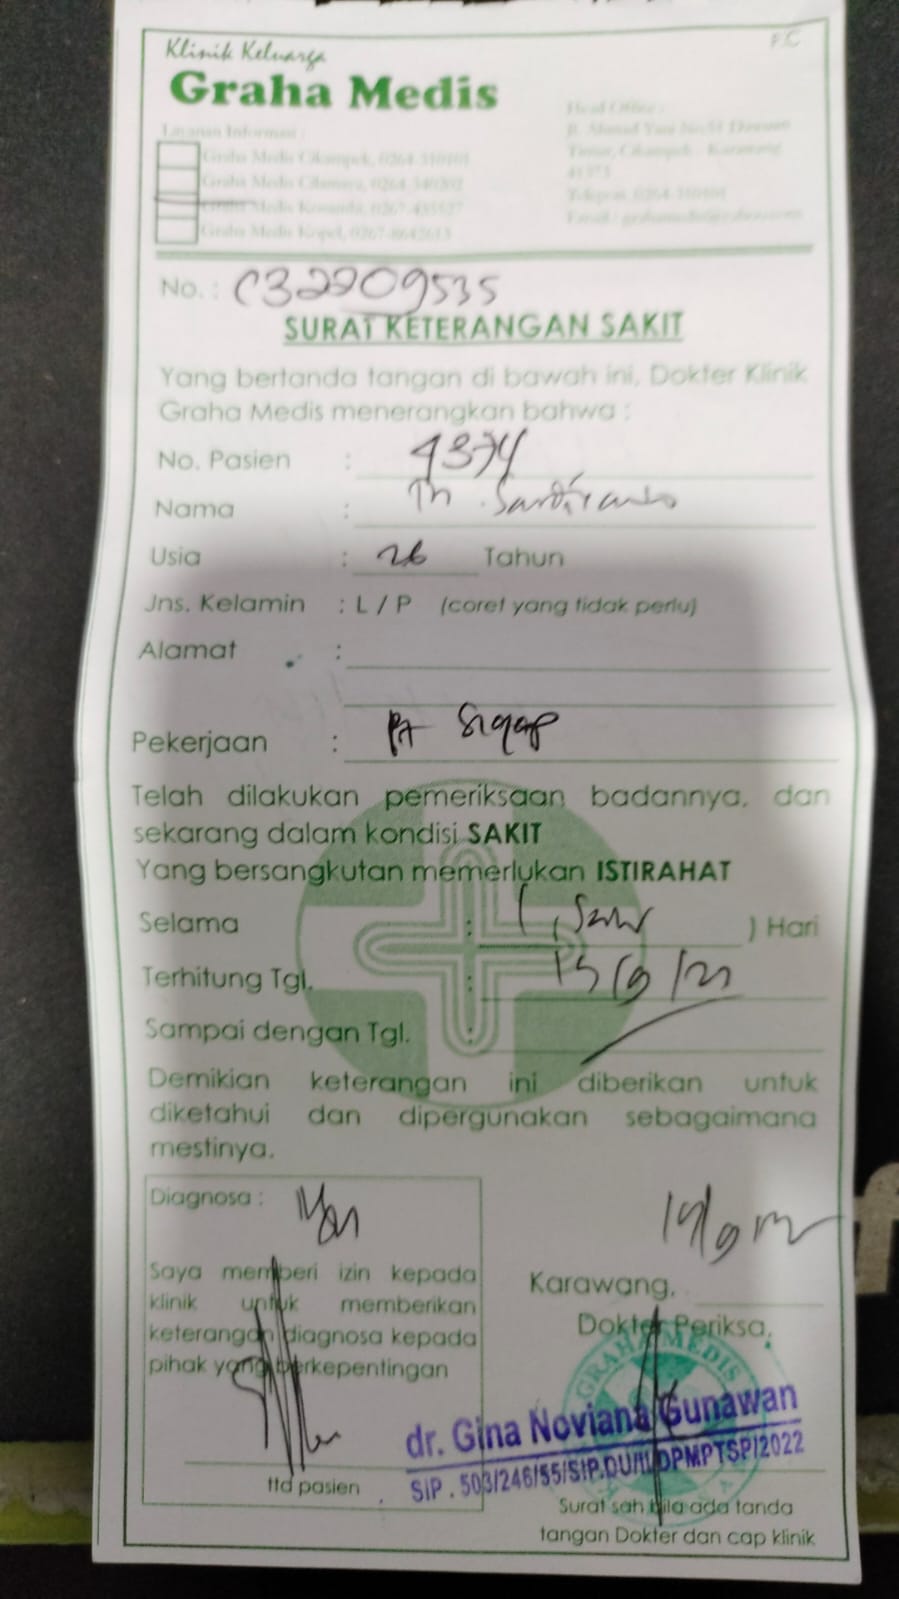 F.C
Klinik Keluarga
Graha Medis
Layanan Informasi :
Head Office :
Graha Medis Cikampek, 0264-310101
Graha Medis Cilamaya, 0264-
Graha Medis Kosambi, 0267-
Graha Medis Kopel, 0267-8642613
No. : C32209535
SURAT KETERANGAN SAKIT
Yang bertanda tangan di bawah ini, Dokter Klinik
Graha Medis menerangkan bahwa :
No. Pasien : 4374
Nama : Tn
Usia : 26 Tahun
Jns. Kelamin : L / P (coret yang tidak perlu)
Alamat :
Pekerjaan : PT Sigap
Telah dilakukan pemeriksaan badannya, dan
sekarang dalam kondisi SAKIT
Yang bersangkutan memerlukan ISTIRAHAT
Selama : 1 ( Satu ) Hari
Terhitung Tgl. : 15/9/22
Sampai dengan Tgl. :
Demikian keterangan ini diberikan untuk
diketahui dan dipergunakan sebagaimana
mestinya.
Diagnosa :
Saya memberi izin kepada
klinik untuk memberikan
keterangan diagnosa kepada
pihak yang berkepentingan
ttd pasien
Karawang, 15/9/22
Dokter Periksa,
GRAHA MEDIS
dr. Gina Noviana Gunawan
SIP . 503/246/55/SIP.DU/II/DPMPTSP/2022
Surat sah bila ada tanda
tangan Dokter dan cap klinik